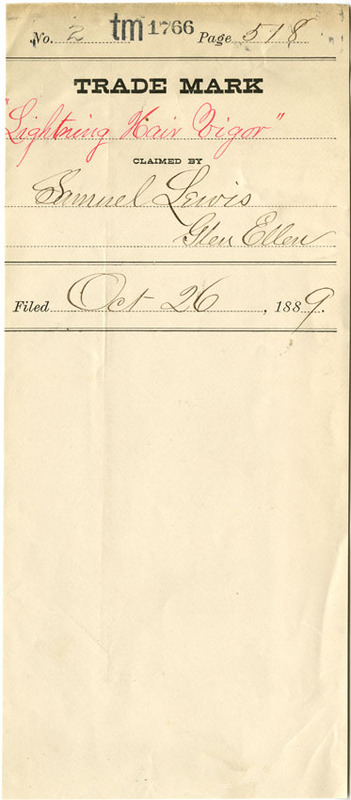 No. 2 tm 1766 Page 518
TRADE MARK
"Lightning Hair Vigor"
CLAIMED BY
Samuel Lewis
Glen Ellen
Filed Oct 26, 1889.